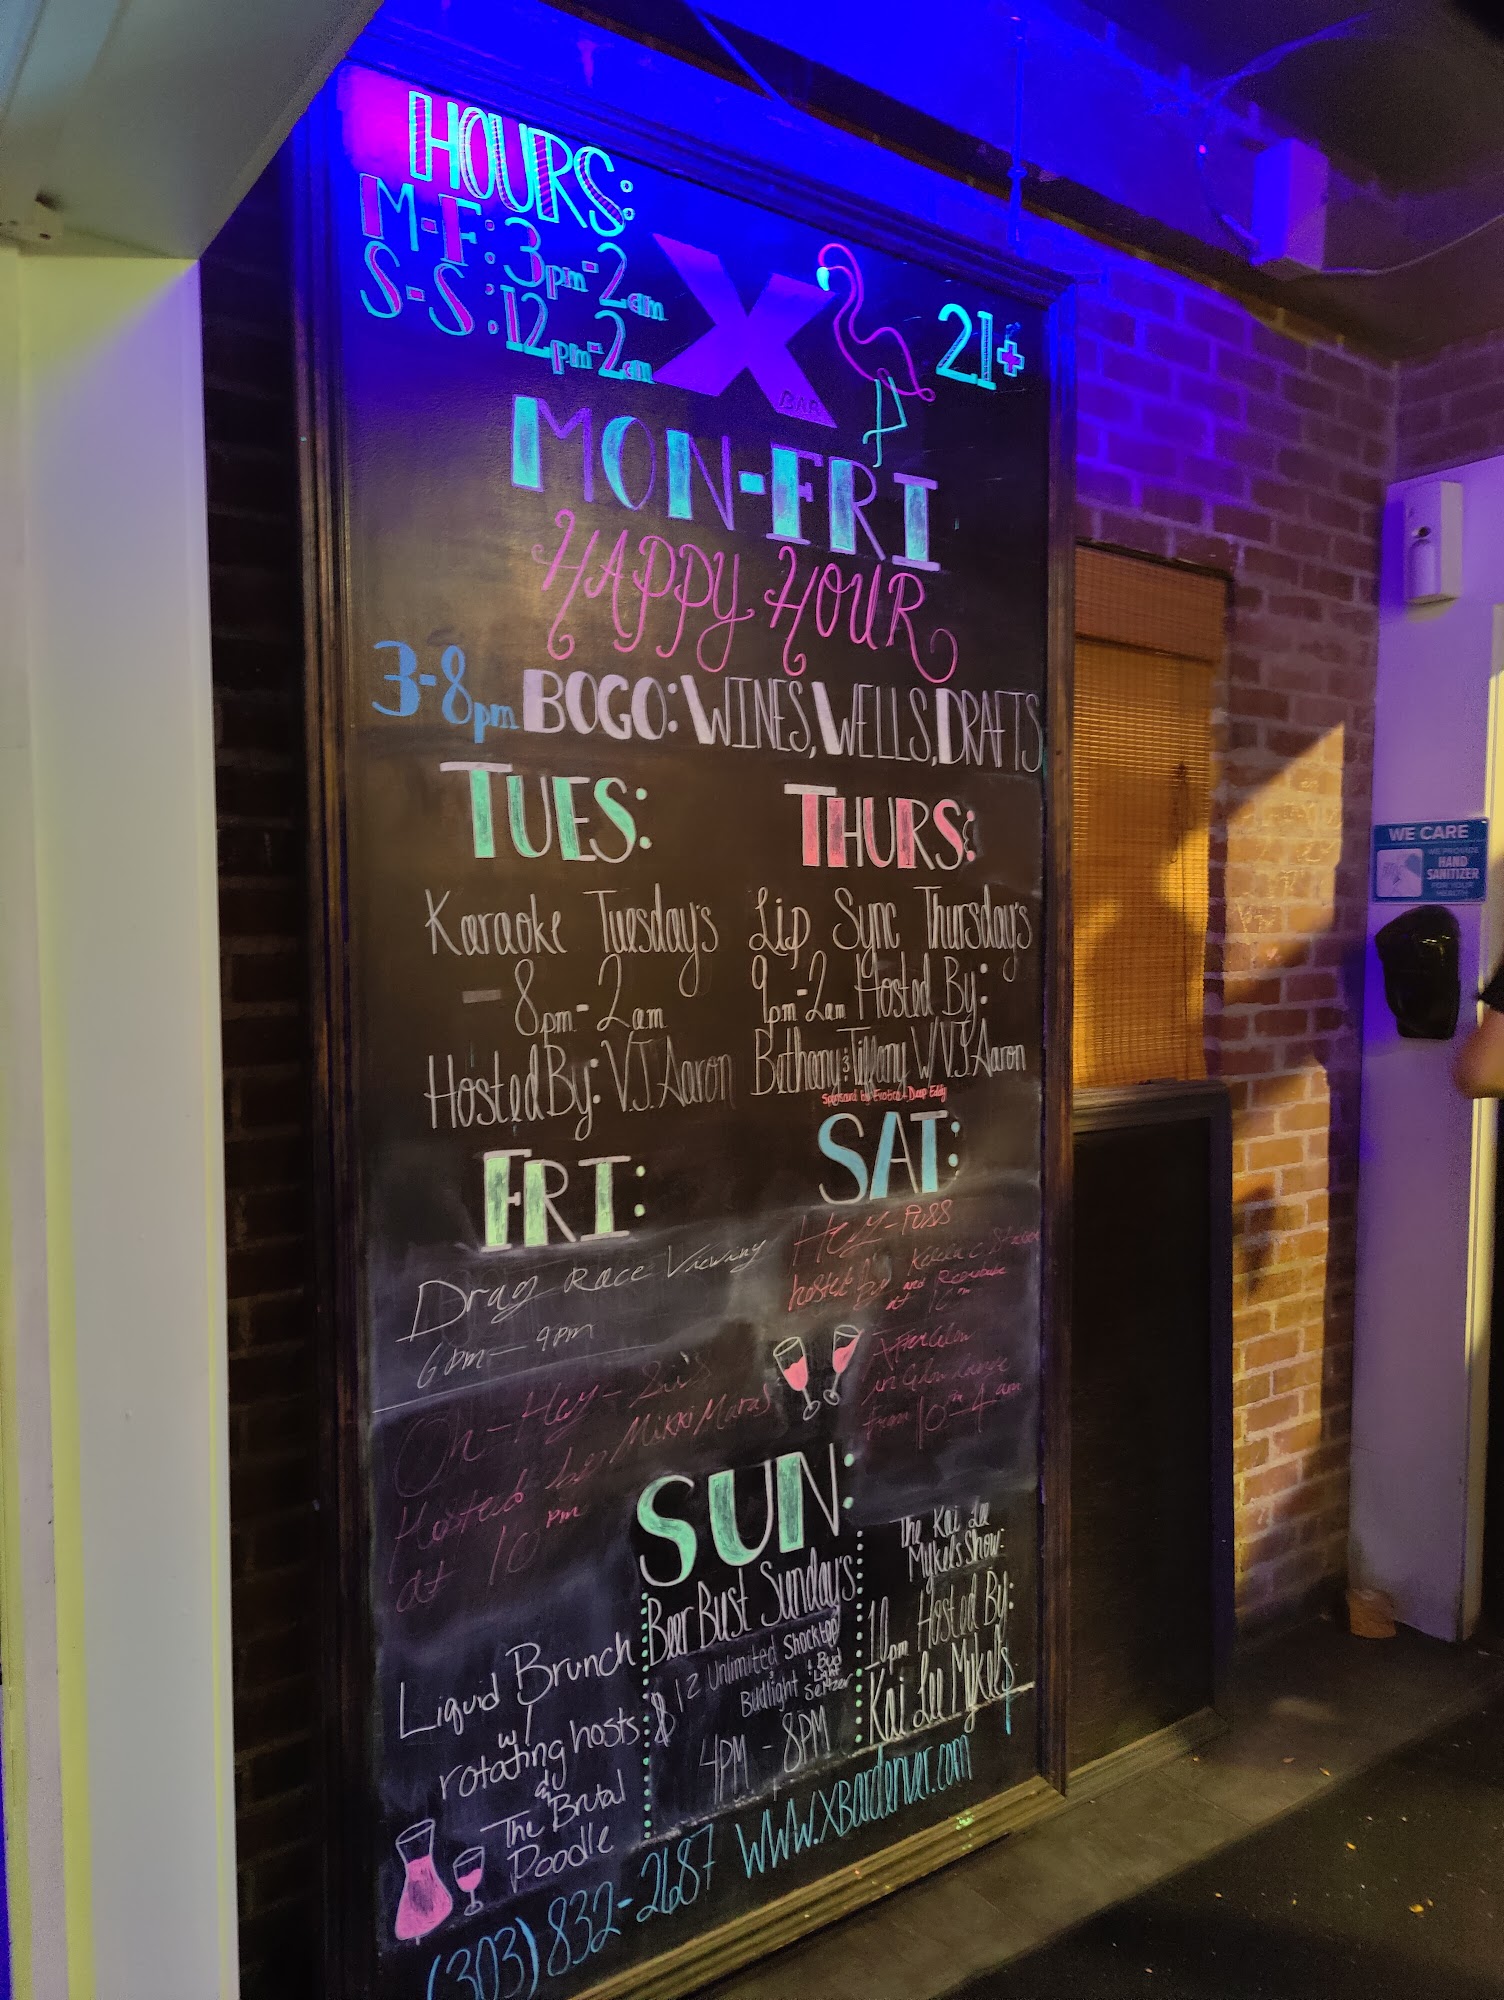 HOURS:
M-F: 3pm-2am
S-S: 12pm-2am
X
BAR
21+
MON-FRI
HAPPY HOUR
3-8pm BOGO: WINES, WELLS, DRAFTS
TUES:
Karaoke Tuesday's
8pm - 2am
Hosted By: V.J. Aaron
THURS:
Lip Sync Thursday's
9pm-2am Hosted By:
Bethany & Tiffany W V.J. Aaron
Sponsored by Exotico & Deep Eddy
FRI:
Drag Race Viewing
6pm - 9pm
Oh-Hey-Sis's
Hosted by Mikki Maras
at 10pm
SAT:
Hey-Puss
hosted by
and
at 10pm
AfterGlow
in Glow lounge
from 10pm-4am
SUN:
Liquid Brunch
w/
rotating hosts
&
The Brutal
Poodle
Beer Bust Sunday's
$12 Unlimited Shocktop
Budlight & Bud Light Seltzer
4PM - 8PM
The Kai Lee
Mykels Show:
10pm Hosted By:
Kai Lee Mykels
(303) 832-2687 www.XBardenver.com
WE CARE
WE PROVIDE
HAND
SANITIZER
FOR YOUR
HEALTH